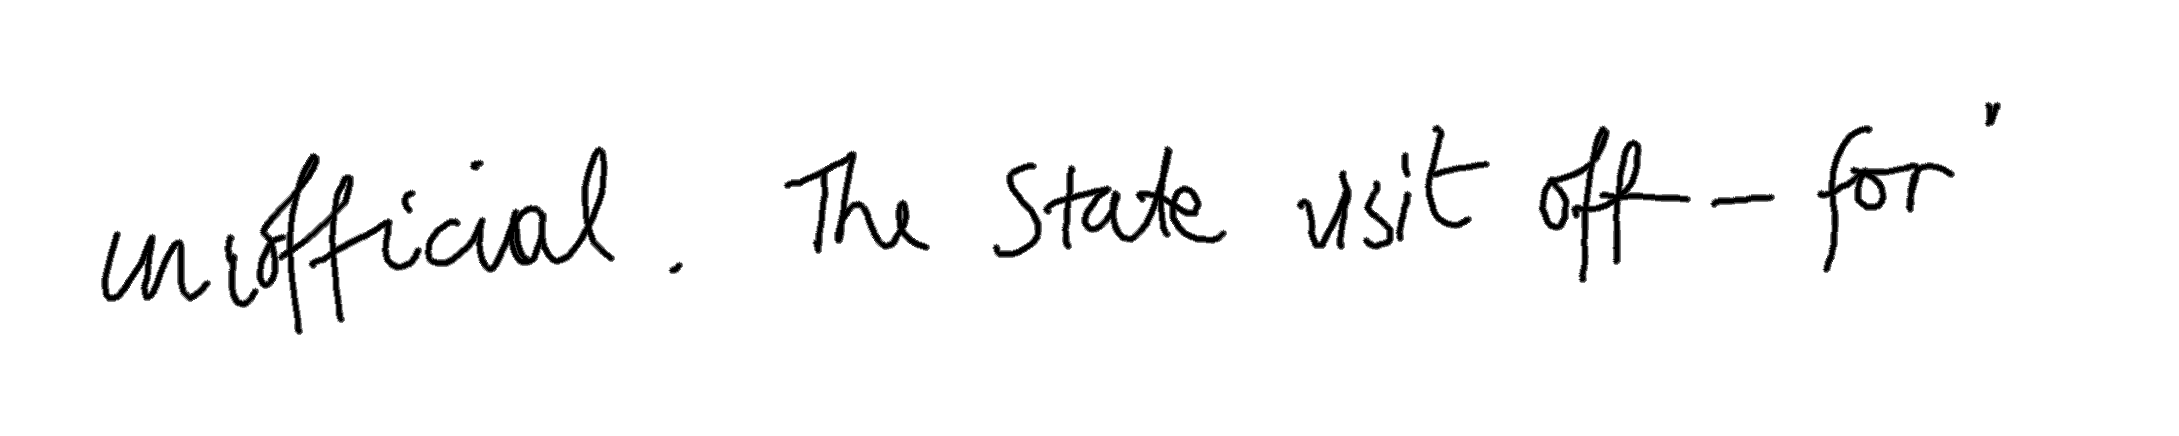 unofficial. The State visit off - for "